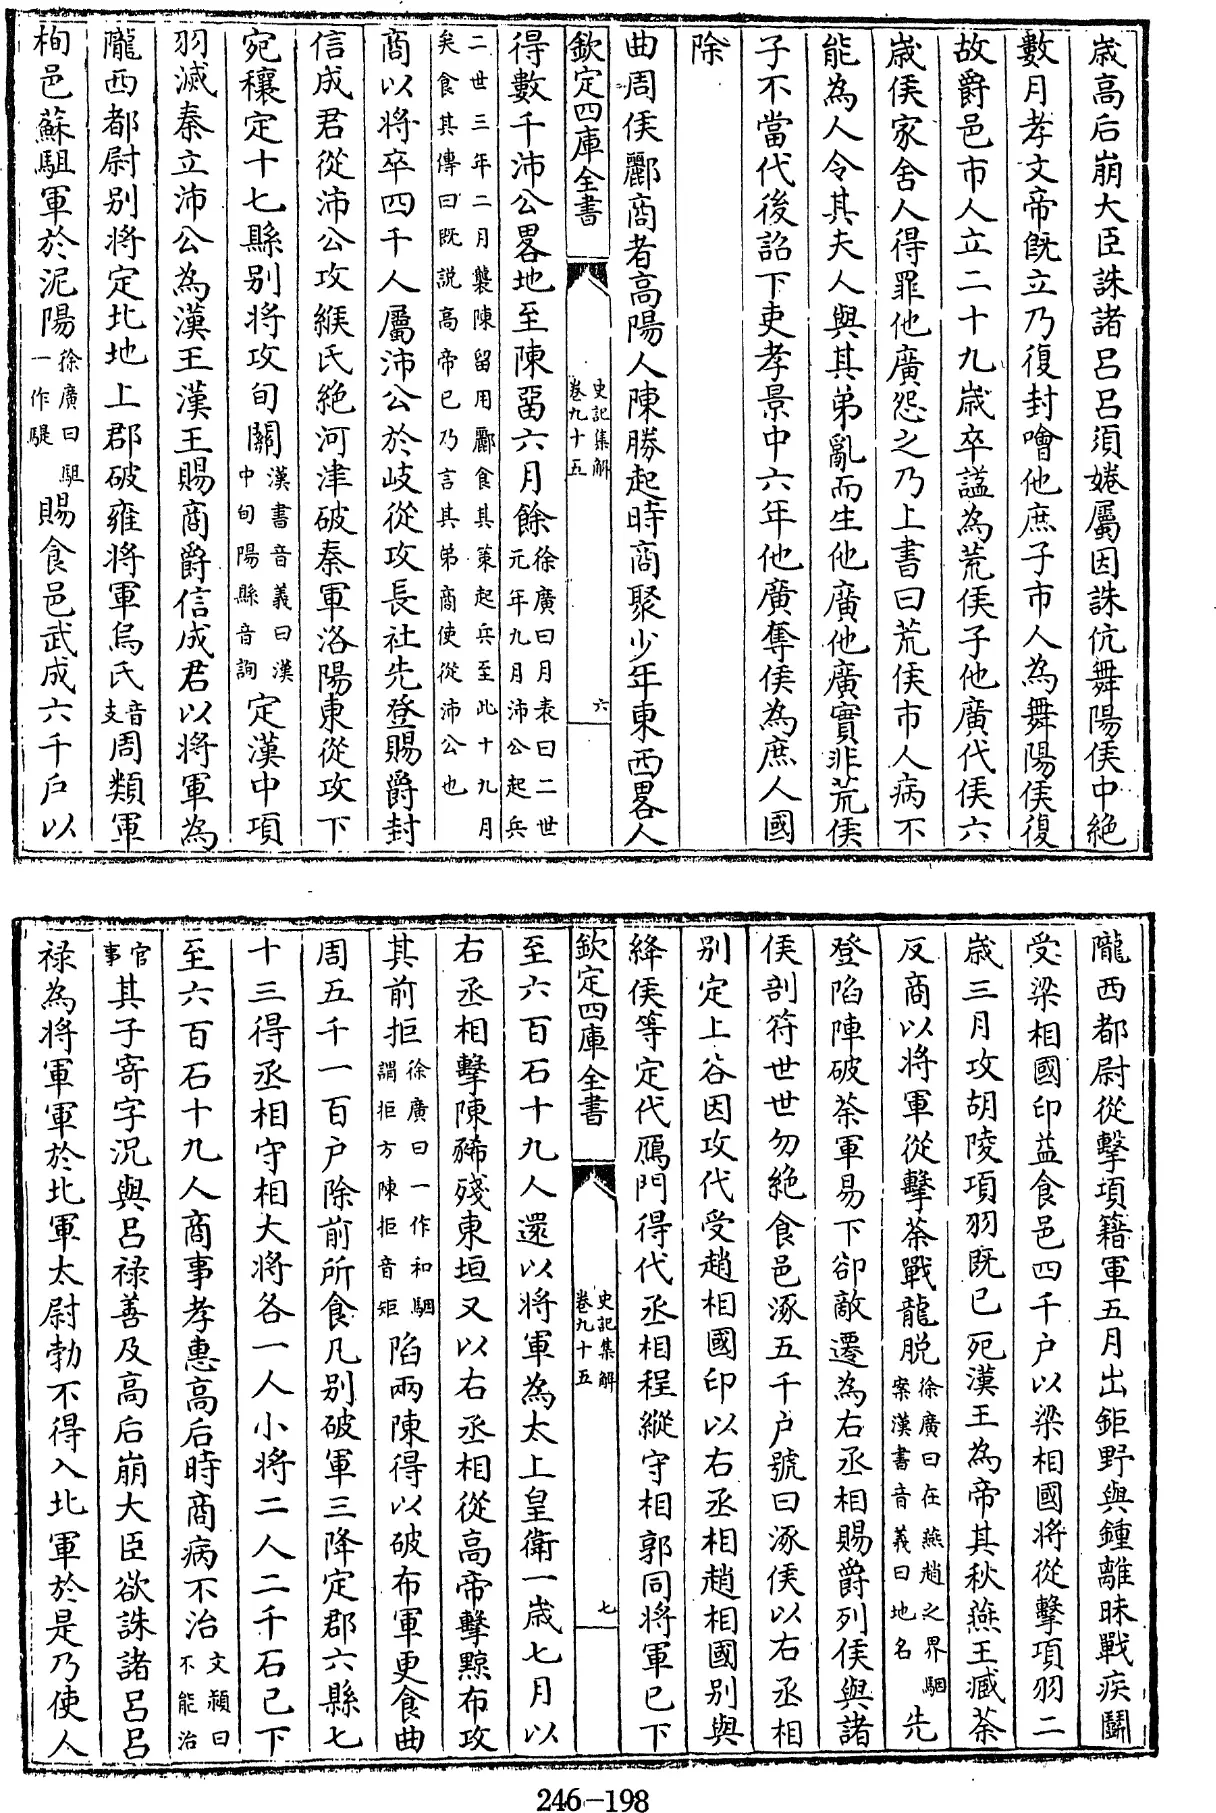 歳高后崩大臣誅諸吕吕須婘屬因誅伉舞陽侯中絶
數月孝文帝旣立乃復封噲他庶子市人為舞陽侯復
故爵邑市人立二十九歳卒諡為荒侯子他廣代侯六
歳侯家舍人得罪他廣怨之乃上書曰荒侯市人病不
能為人令其夫人與其弟亂而生他廣他廣實非荒侯
子不當代後詔下吏孝景中六年他廣奪侯為庶人國
除
曲周侯酈商者高陽人陳勝起時商聚少年東西畧人
欽定四庫全書
史記集解
卷九十五
六
得數千沛公畧地至陳畱六月餘
徐廣曰月表曰二世
元年九月沛公起兵
二世三年二月襲陳留用酈食其策起兵至此十九月
矣食其傳曰旣説高帝已乃言其弟商使從沛公也
商以將卒四千人屬沛公於岐從攻長社先登賜爵封
信成君從沛公攻緱氏絶河津破秦軍洛陽東從攻下
宛穰定十七縣别將攻旬關
漢書音義曰漢
中旬陽縣音詢
定漢中項
羽滅秦立沛公為漢王漢王賜商爵信成君以將軍為
隴西都尉别將定北地上郡破雍將軍烏氏
音
支
周類軍
栒邑蘇駔軍於泥陽
徐廣曰駔
一作騠
賜食邑武成六千户以
隴西都尉從擊項籍軍五月出鉅野與鍾離眛戰疾鬭
受梁相國印益食邑四千户以梁相國將從擊項羽二
歳三月攻胡陵項羽旣已死漢王為帝其秋燕王臧荼
反商以將軍從擊荼戰龍脱
徐廣曰在燕趙之界駰
案漢書音義曰地名
先
登陷陣破荼軍易下卻敵遷為右丞相賜爵列侯與諸
侯剖符世世勿絶食邑涿五千户號曰涿侯以右丞相
别定上谷因攻代受趙相國印以右丞相趙相國别與
絳侯等定代鴈門得代丞相程縱守相郭同將軍已下
欽定四庫全書
史記集解
卷九十五
七
至六百石十九人還以將軍為太上皇衛一歳七月以
右丞相擊陳豨殘東垣又以右丞相從高帝擊黥布攻
其前拒
徐廣曰一作和駰
謂拒方陳拒音矩
陷兩陳得以破布軍更食曲
周五千一百户除前所食凡别破軍三降定郡六縣七
十三得丞相守相大將各一人小將二人二千石已下
至六百石十九人商事孝惠高后時商病不治
文穎曰
不能治
官
事
其子寄字況與吕禄善及高后崩大臣欲誅諸吕吕
禄為將軍軍於北軍太尉勃不得入北軍於是乃使人
246-198